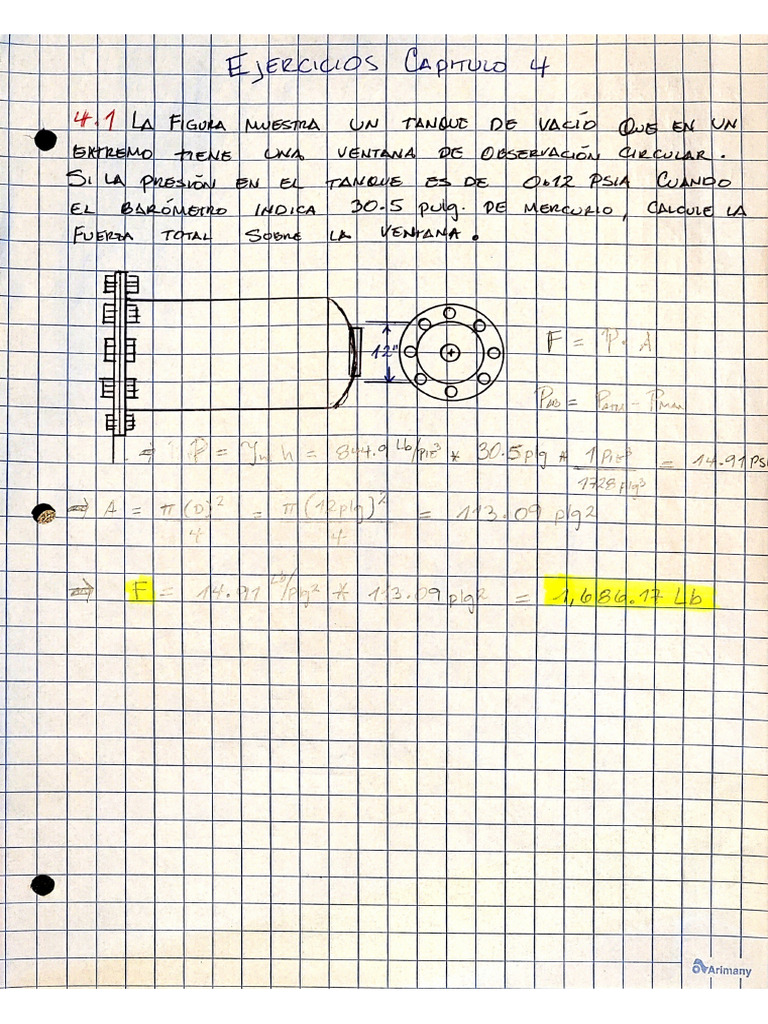 EJERCICIOS CAPITULO 4
4.1 LA FIGURA MUESTRA UN TANQUE DE VACÍO QUE EN UN
EXTREMO TIENE UNA VENTANA DE OBSERVACIÓN CIRCULAR.
SI LA PRESIÓN EN EL TANQUE ES DE 0.12 PSIA CUANDO
EL BARÓMETRO INDICA 30.5 pulg. DE MERCURIO, CALCULE LA
FUERZA TOTAL SOBRE LA VENTANA.
12"
F = P · A
⇒ P = γm h = 844.9 Lb/pie³ * 30.5 plg * 1 Pie³ / 1728 plg³ = 14.91 PSI
⇒ A = π(D)²/4 = π(12plg)²/4 = 113.09 plg²
⇒ F = 14.91 Lb/plg² * 113.09 plg² = 1,686.17 Lb
Arimany